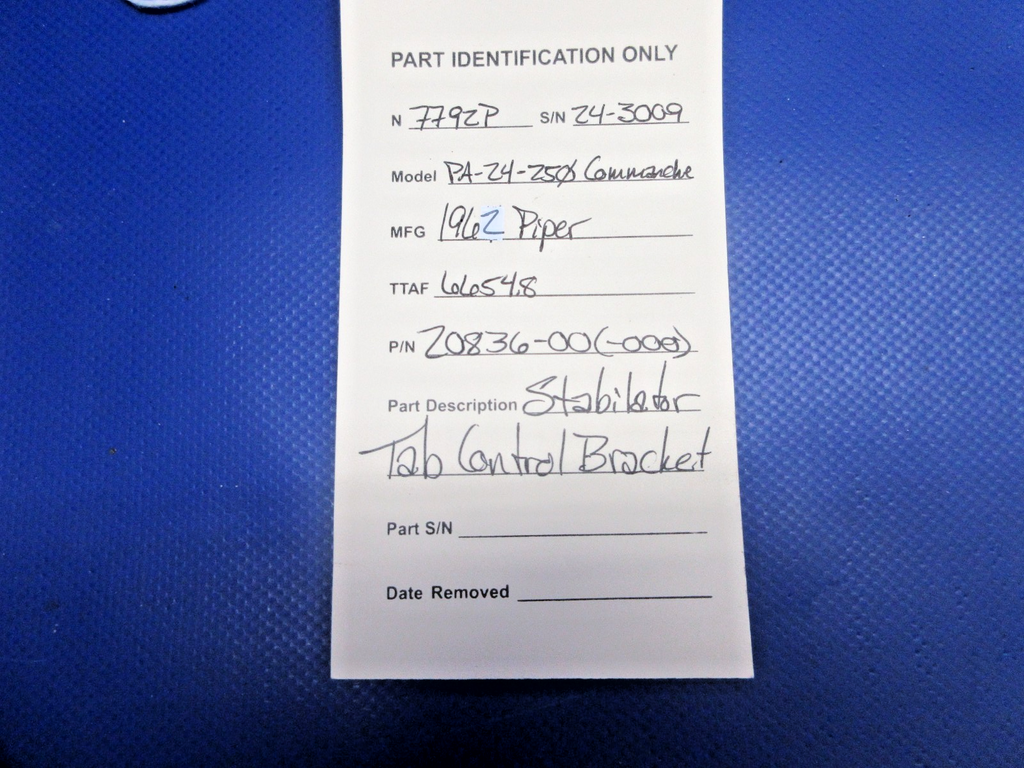 PART IDENTIFICATION ONLY
N 7792P S/N 24-3009
Model PA-24-250 Commanche
MFG 1962 Piper
TTAF 6654.8
P/N 20836-00(-000)
Part Description Stabilator
Tab Control Bracket
Part S/N
Date Removed